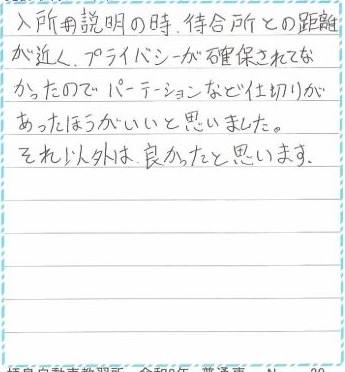 入所説明の時、待合所との距離
が近く、プライバシーが確保されてな
かったのでパーテーションなど仕切りが
あったほうがいいと思いました。
それ以外は、良かったと思います。